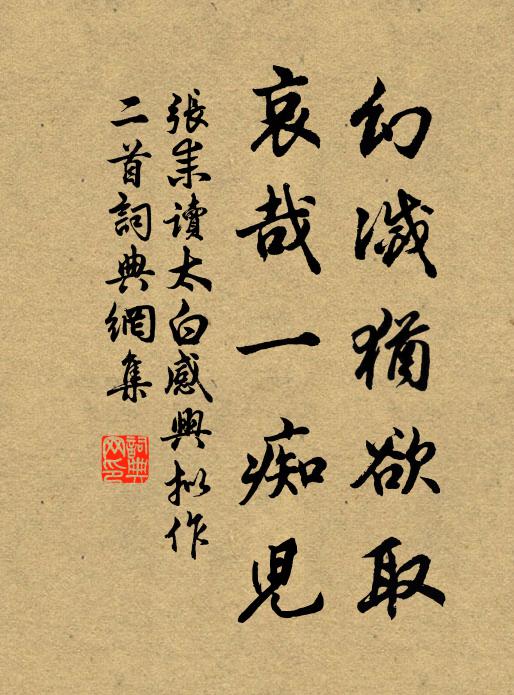 幻滅猶欲取
哀哉一痴児
張耒讀太白感興擬作
二首詞典網集
詞典网印